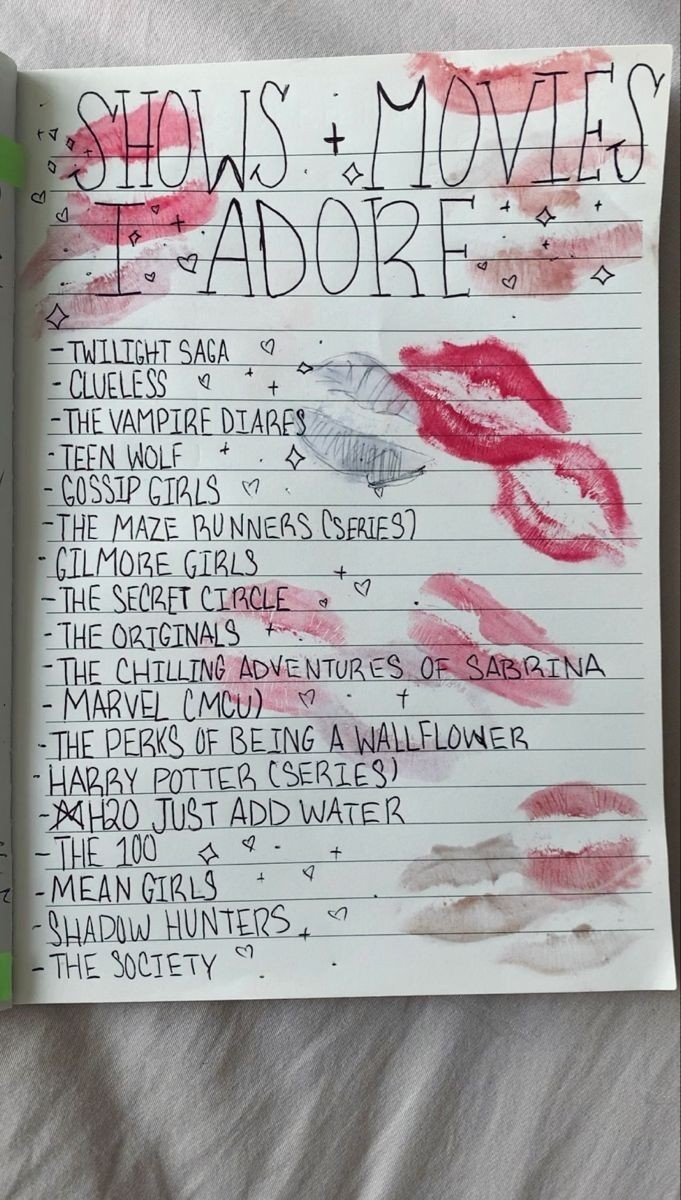 SHOWS + MOVIES
I ADORE
- TWILIGHT SAGA
- CLUELESS
- THE VAMPIRE DIARES
- TEEN WOLF
- GOSSIP GIRLS
- THE MAZE RUNNERS (SERIES)
- GILMORE GIRLS
- THE SECRET CIRCLE
- THE ORIGINALS
- THE CHILLING ADVENTURES OF SABRINA
- MARVEL (MCU)
- THE PERKS OF BEING A WALLFLOWER
- HARRY POTTER (SERIES)
- H2O JUST ADD WATER
- THE 100
- MEAN GIRLS
- SHADOW HUNTERS
- THE SOCIETY